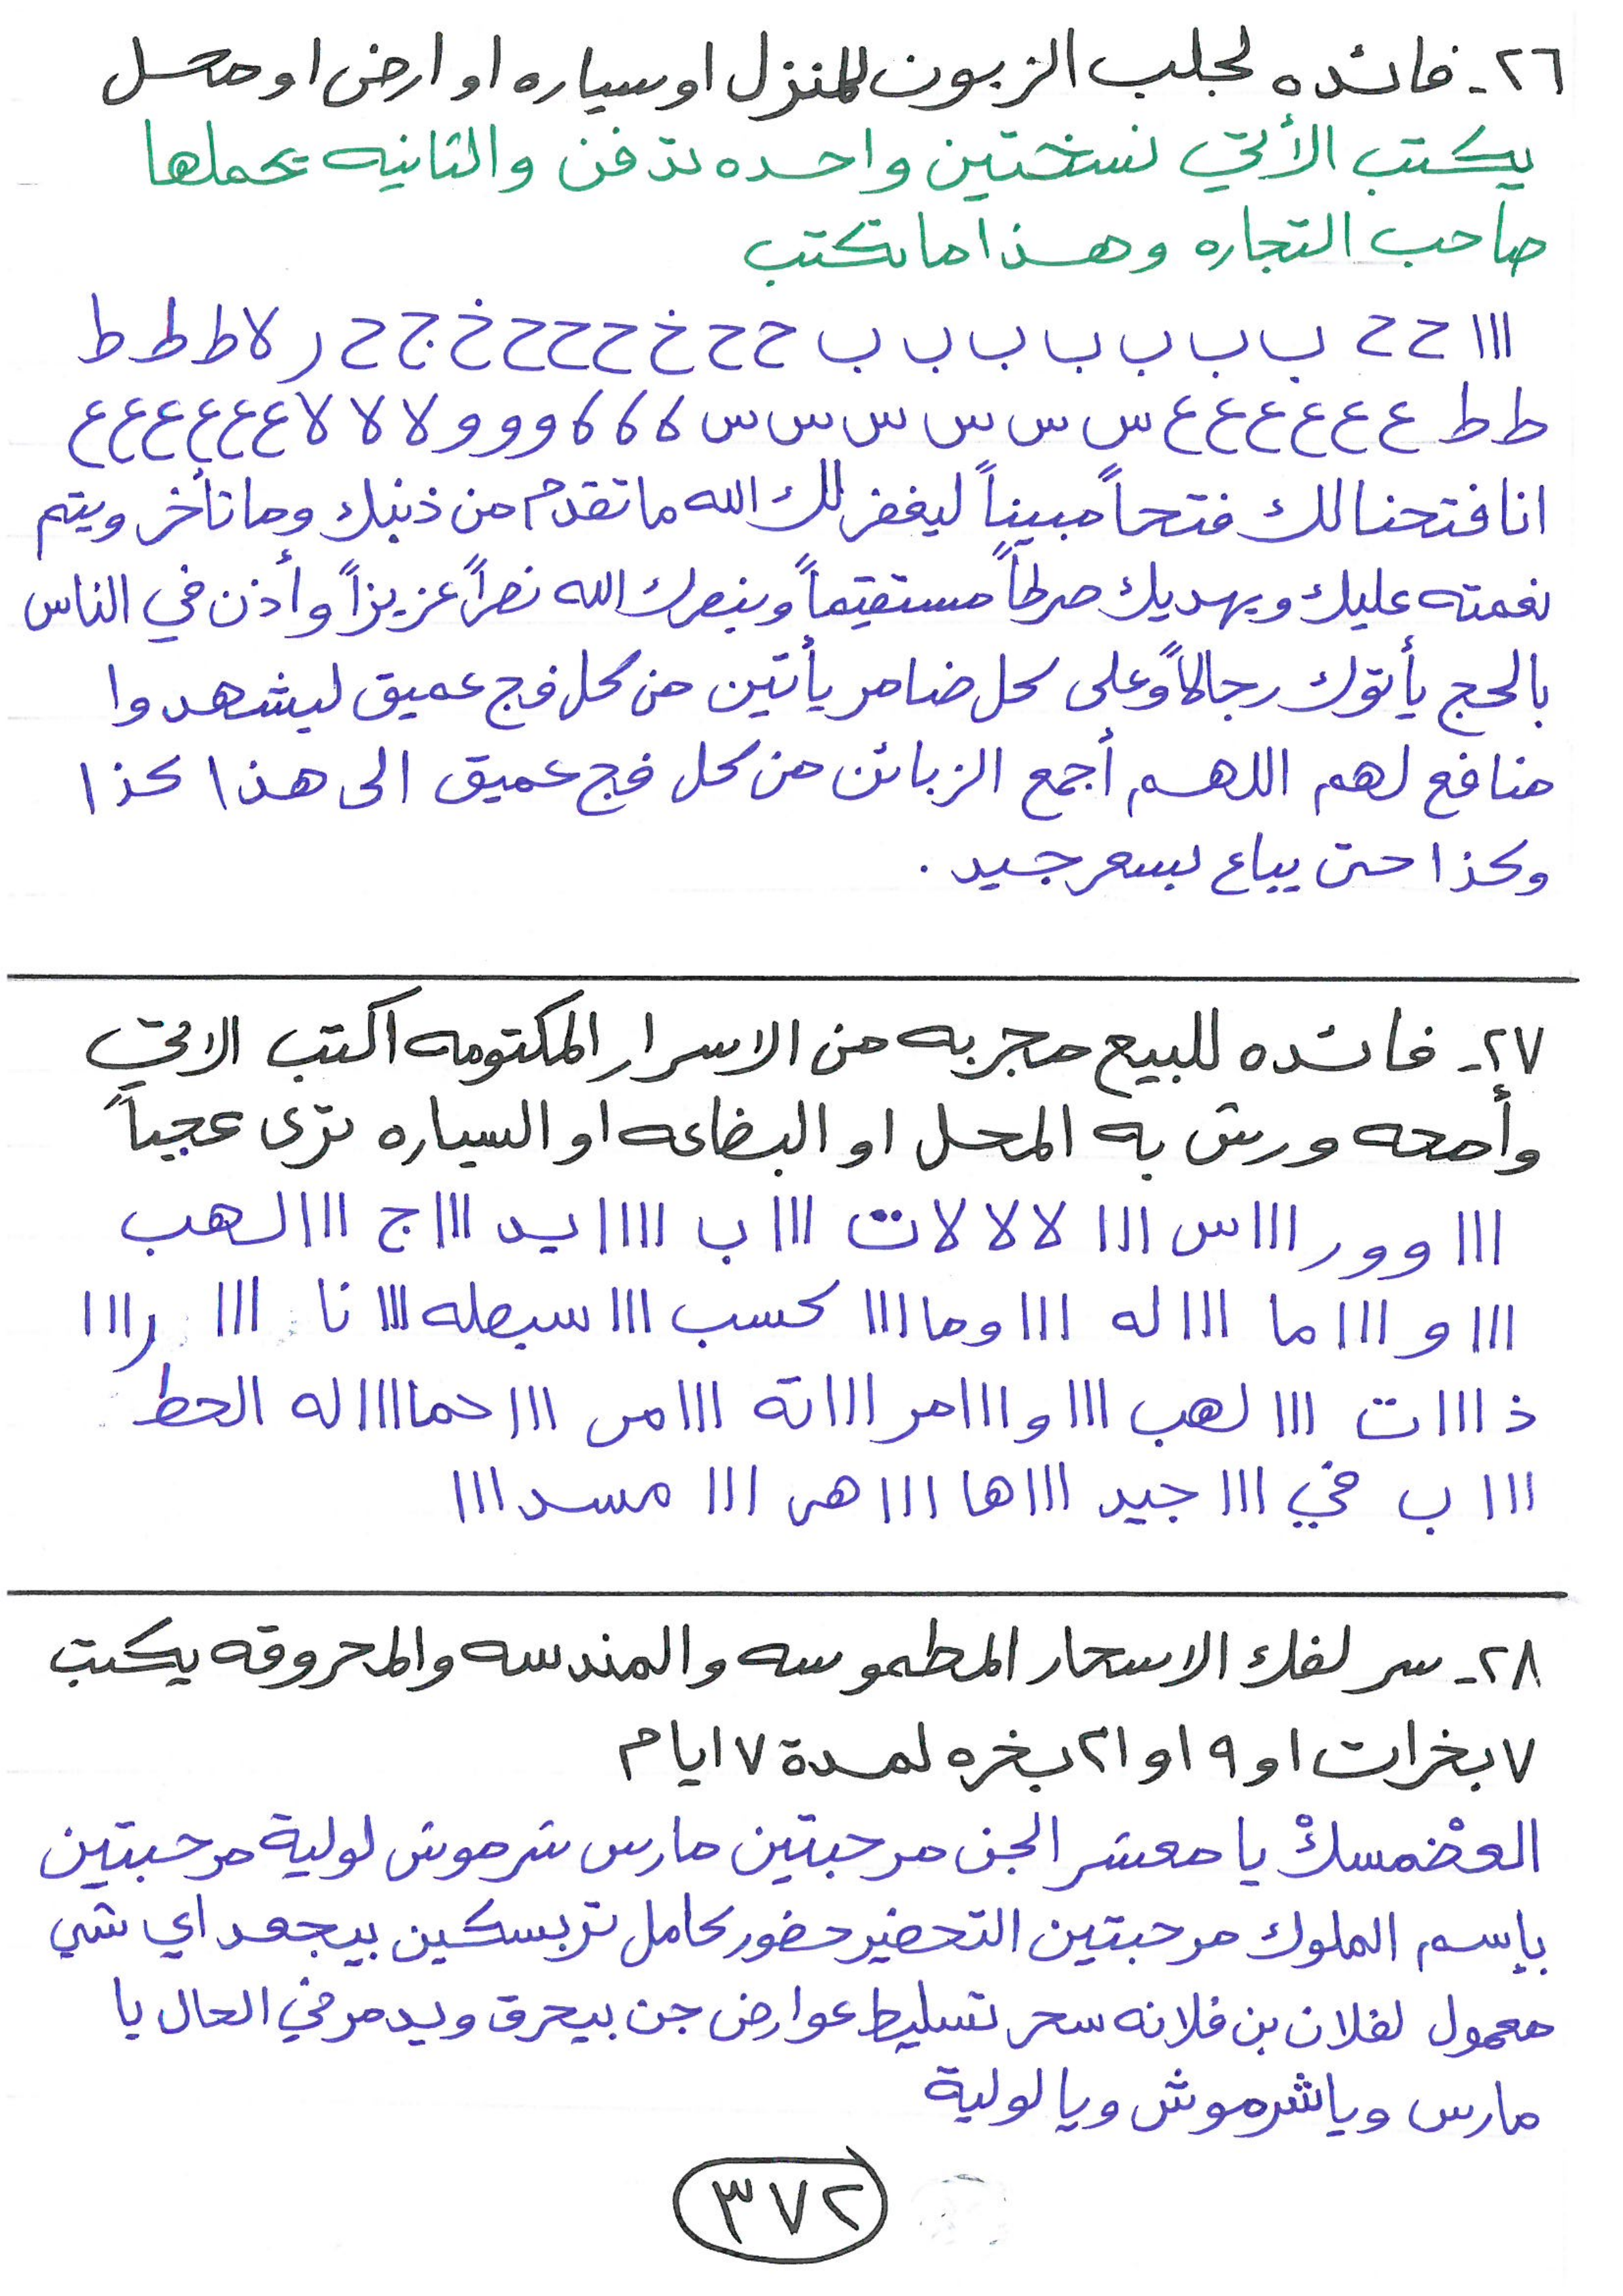 ٢٦- فائده لجلب الزبون للمنزل او سياره او ارض او محل
يكتب الأتي نسختين واحده تدفن والثانيه يحملها
صاحب التجاره وهذا ما تكتب
ااا ح ح ب ب ب ب ب ب ب ح ح خ ح ح ح خ ج ح ر لا ط ط ط
ط ط ع ع ع ع ع ع س س س س س س ك ك ك و و و لا لا لا ع ع ع ع ع ع
انا فتحنا لك فتحاً مبيناً ليغفر لك الله ما تقدم من ذنبك وما تأخر ويتم
نعمته عليك ويهديك صرطاً مستقيماً وينصرك الله نصراً عزيزاً وأذن في الناس
بالحج يأتوك رجالاً وعلى كل ضامر يأتين من كل فج عميق ليشهدوا
منافع لهم اللهم أجمع الزبائن من كل فج عميق الى هذا كذا
وكذا حتى يباع بسعر جيد .
٢٧- فائده للبيع مجربه من الاسرار المكتومه اكتب الاتي
وأمحه ورش به المحل او البضاعه او السياره ترى عجباً
ااا وور ااا س ااا لا لا لات ااا ب اااا يد ااا ج ااا لهب
ااا و ااا ما ااا له ااا وما ااا كسب ااا سيصله ااا نا ااا ر ااا
ذ ااا ت ااا لهب ااا و ااا مر ااا ته ااا مر ااا حما ااا له الحط
ااا ب في ااا جيد ااا ها ااا من ااا مسد ااا
٢٨- سر لفك الاسحار المطموسه والمندسه والمحروقه يكتب
٧ بخرات او ٩ او ٢١ بخره لمدة ٧ ايام
العضمسك يا معشر الجن مرحبتين مارس شرموش لولية مرحبتين
بإسم الملوك مرحبتين التحضير حضور كامل تربسكين بيجعد اي شي
معمول لفلان بن فلانه سحر تسليط عوارض جن بيحرق ويدمر في الحال يا
مارس وياشرموش ويا لولية
٣٧٢